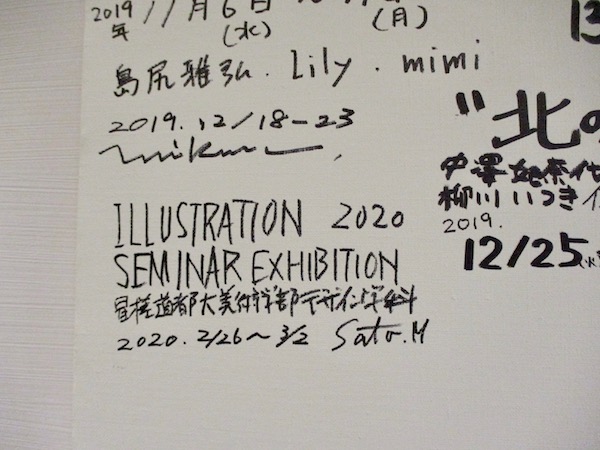 2019年 11月6日(水)
(月)
島尻雅弘. Lily. mimi
2019.12/18-23
ILLUSTRATION 2020
SEMINAR EXHIBITION
星槎道都大美術学部デザイン学科
2020.2/26〜3/2 Sato.M
13
"北の
中澤 奈代
柳川いつき
2019.
12/25(水)